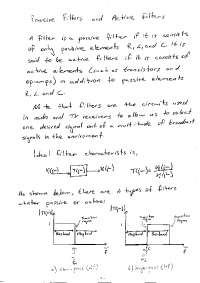 Passive Filters and Active Filters
A filter is a passive filter if it is consists
of only passive elements R, L, and C. It is
said to be active filters if it is consists of
active elements (such as transistors and
op-amps) in addition to passive elements
R, L and C.
Note that filters are the circuits used
in radio and TV receivers to allow us to select
one desired signal out of a multitude of broadcast
signals in the environment.
Ideal filter characteristic is,
As shown below, there are 4 types of filters
whether passive or active:
Passband
Stopband
Stopband
Passband